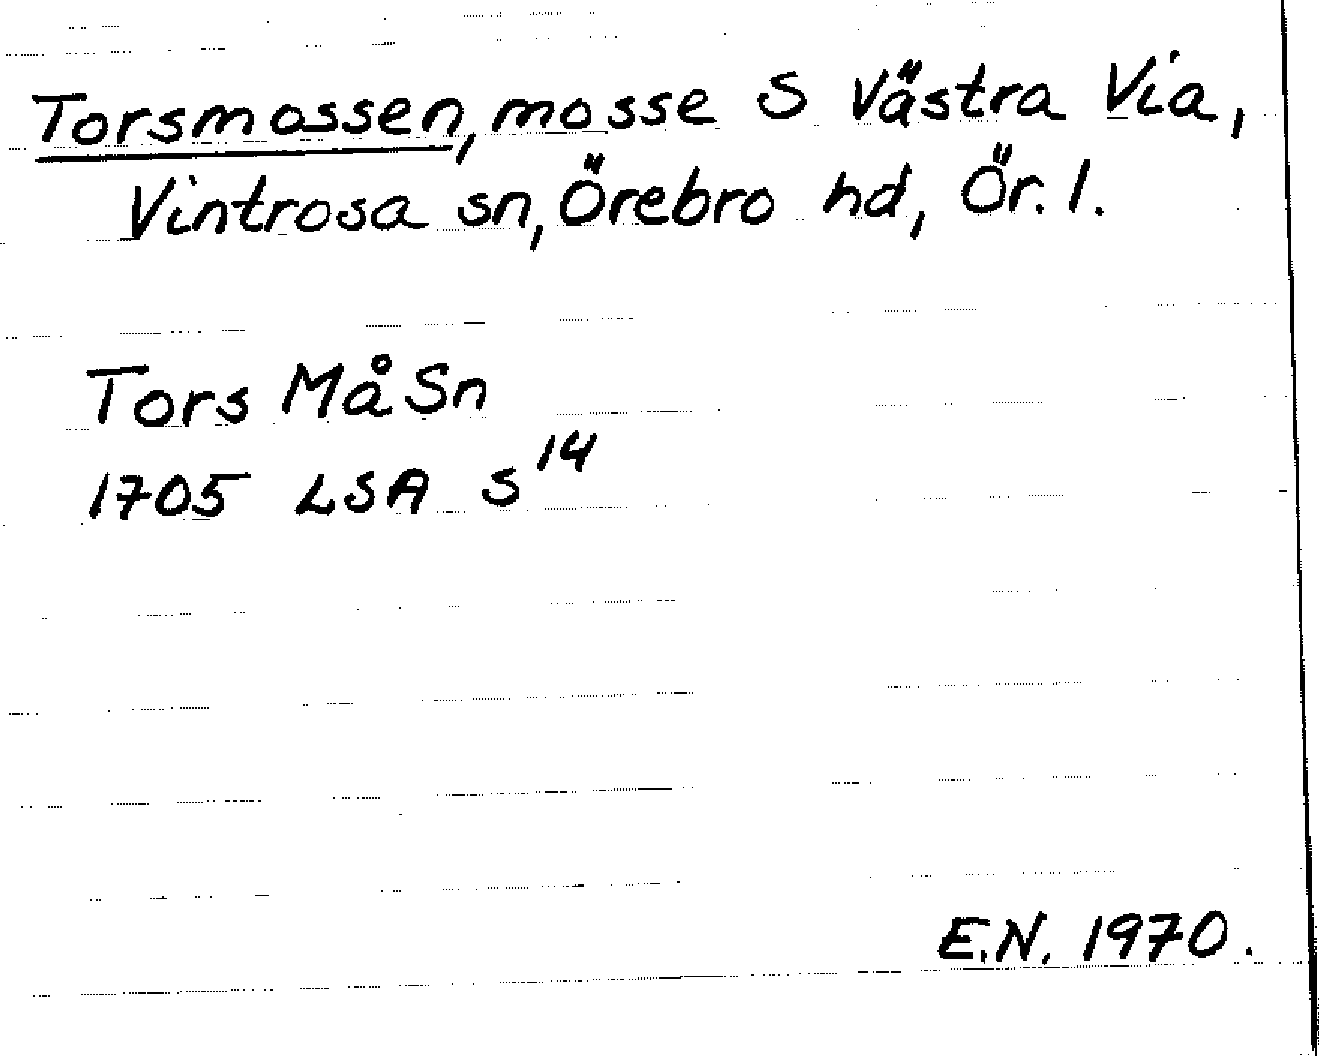 Torsmossen, mosse S Västra Via,
Vintrosa sn, Örebro hd, Ör. l.
Tors MåSn
1705 LSA S¹⁴
E.N. 1970.